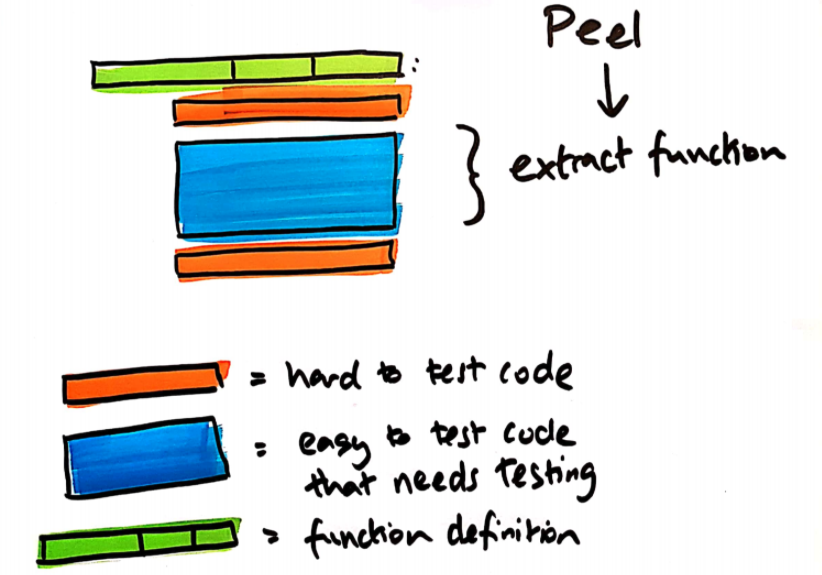 Peel
:
} extract function
= hard to test code
= easy to test code
that needs testing
= function definition